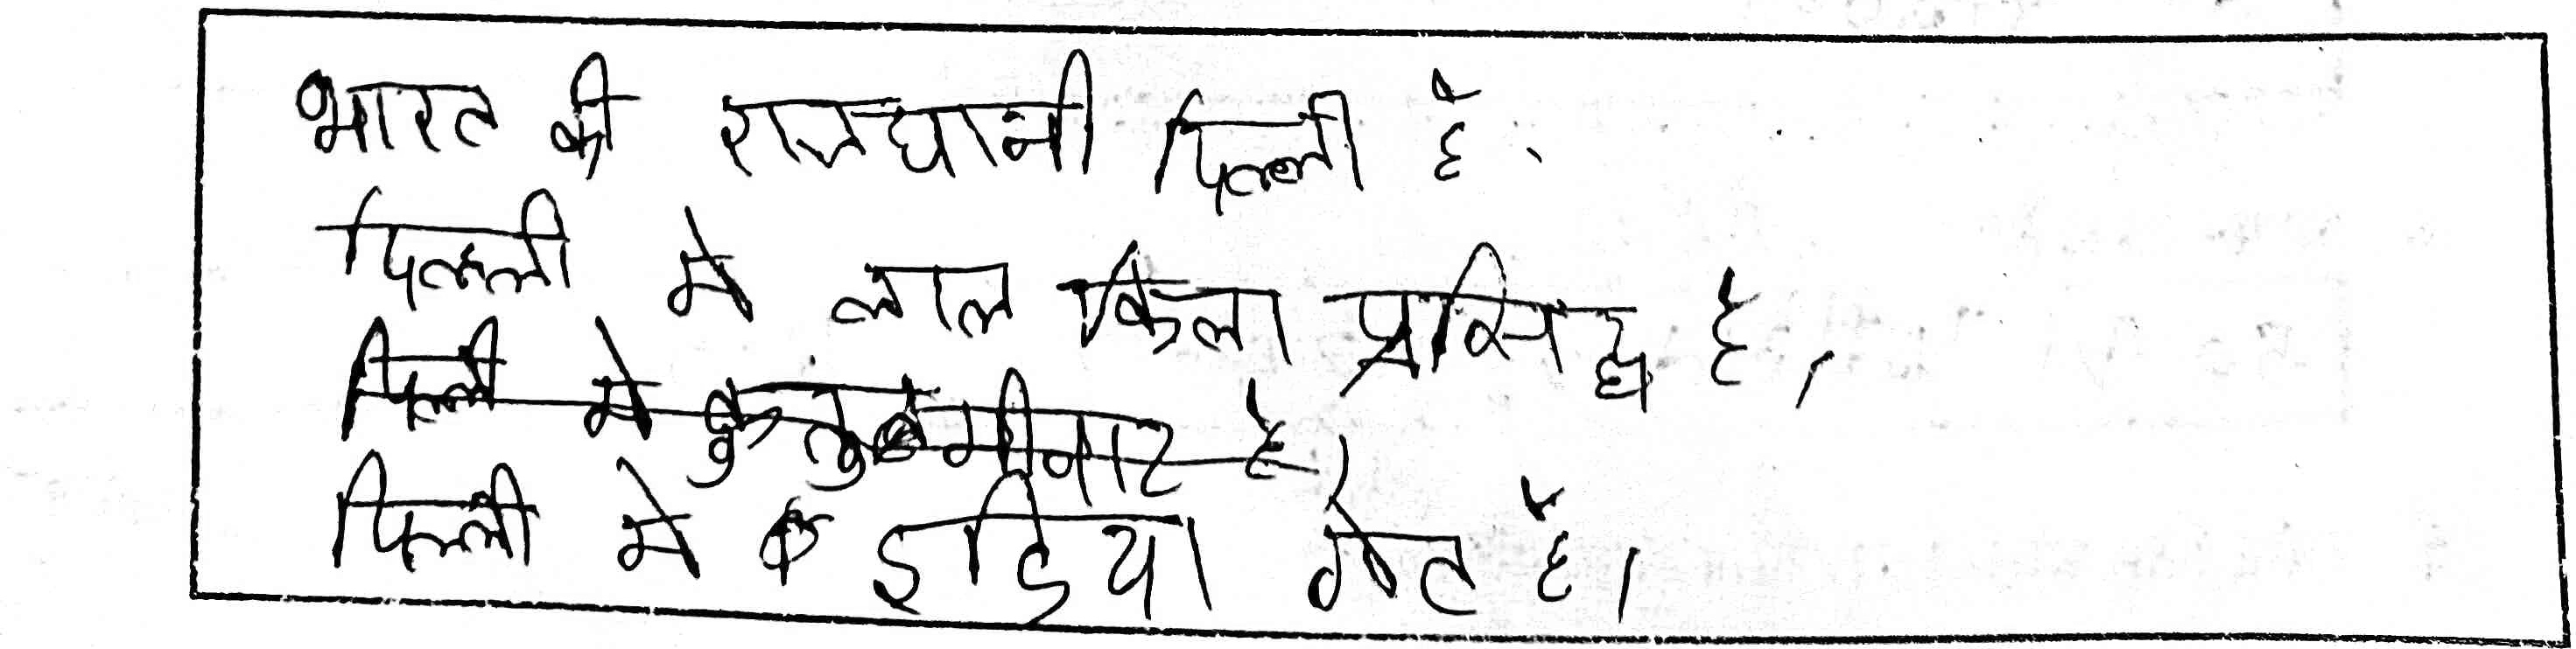 भारत की राजधानी दिल्ली है.
दिल्ली मे लाल किला प्रसिद्ध है,
दिल्ली मे कुतुबमीनार है।
दिल्ली मे इडिया गेट है।